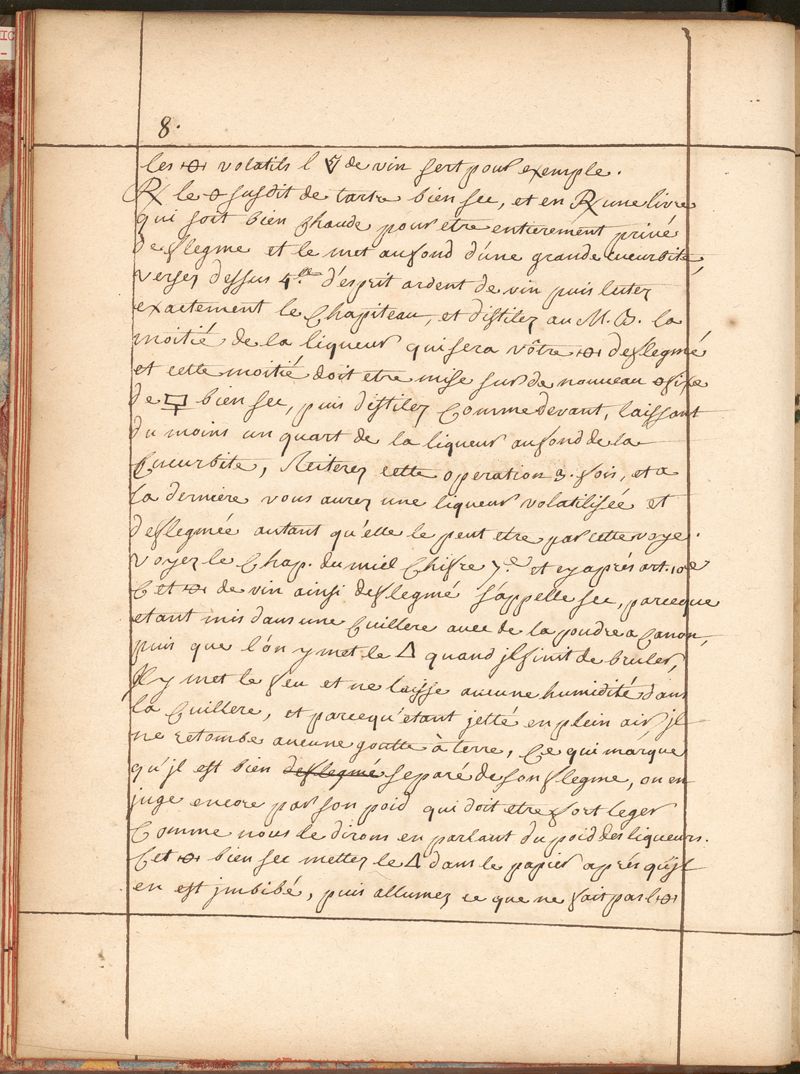 8.
les 🜔 volatils l 🜄 de vin sert pour exemple.
℞ le 🜔 susdit de tartre bien sec, et en ℞ une livre
qui soit bien chaude pour etre entierement privé
de flegme et le met au fond d'une grande cucurbite,
versez dessus 4.ll d'esprit ardent de vin puis lutez
exactement le Chapiteau, et distilez au M. B. la
moitié de la liqueur qui sera vôtre deflegmé
et cette moitié doit etre mise sur de nouveau fixe
de bien sec, puis distilez Comme devant, laissant
du moins un quart de la liqueur au fond de la
Cucurbite, Reiterez cette operation 3. fois, et a
la derniere vous aurez une liqueur volatilisée et
deflegmée autant qu'elle le peut etre par cette voye.
voyez le Chap. du miel Chifre 7.e et cy aprés art. 10e
Cet de vin ainsi deflegmé s'appelle sec, parceque
etant mis dans une Cuillere avec de la poudre a Canon,
puis que l'on y met le 🜂 quand jl finit de bruler,
Jl y met le feu et ne laisse aucune humidité dans
la Cuillere, et parcequ'etant jetté en plein air jl
ne retombe aucune goutte à terre, Ce qui marque
qu'jl est bien deflegmé separé de son flegme, on en
juge encore par son poid qui doit etre fort leger
Comme nous le dirons en parlant du poid des liqueurs.
Cet bien sec mettez le 🜂 dans le papier aprés qu'jl
en est jmbibé, puis allumez ce que ne fait pas l